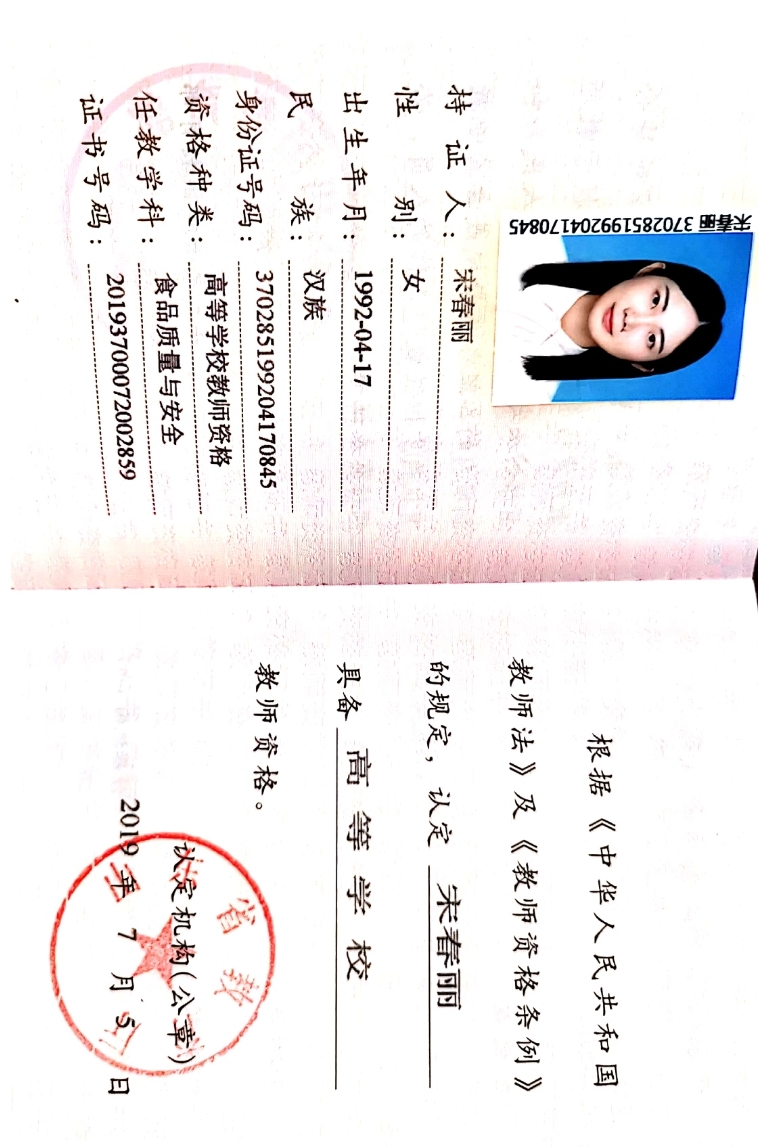 宋春丽 370285199204170845
持证人：宋春丽
性别：女
出生年月：1992-04-17
民族：汉族
身份证号码：370285199204170845
资格种类：高等学校教师资格
任教学科：食品质量与安全
证书号码：20193700072002859
根据《中华人民共和国
教师法》及《教师资格条例》
的规定，认定 宋春丽
具备 高等学校
教师资格。
认定机构(公章)
2019年7月5日
省教